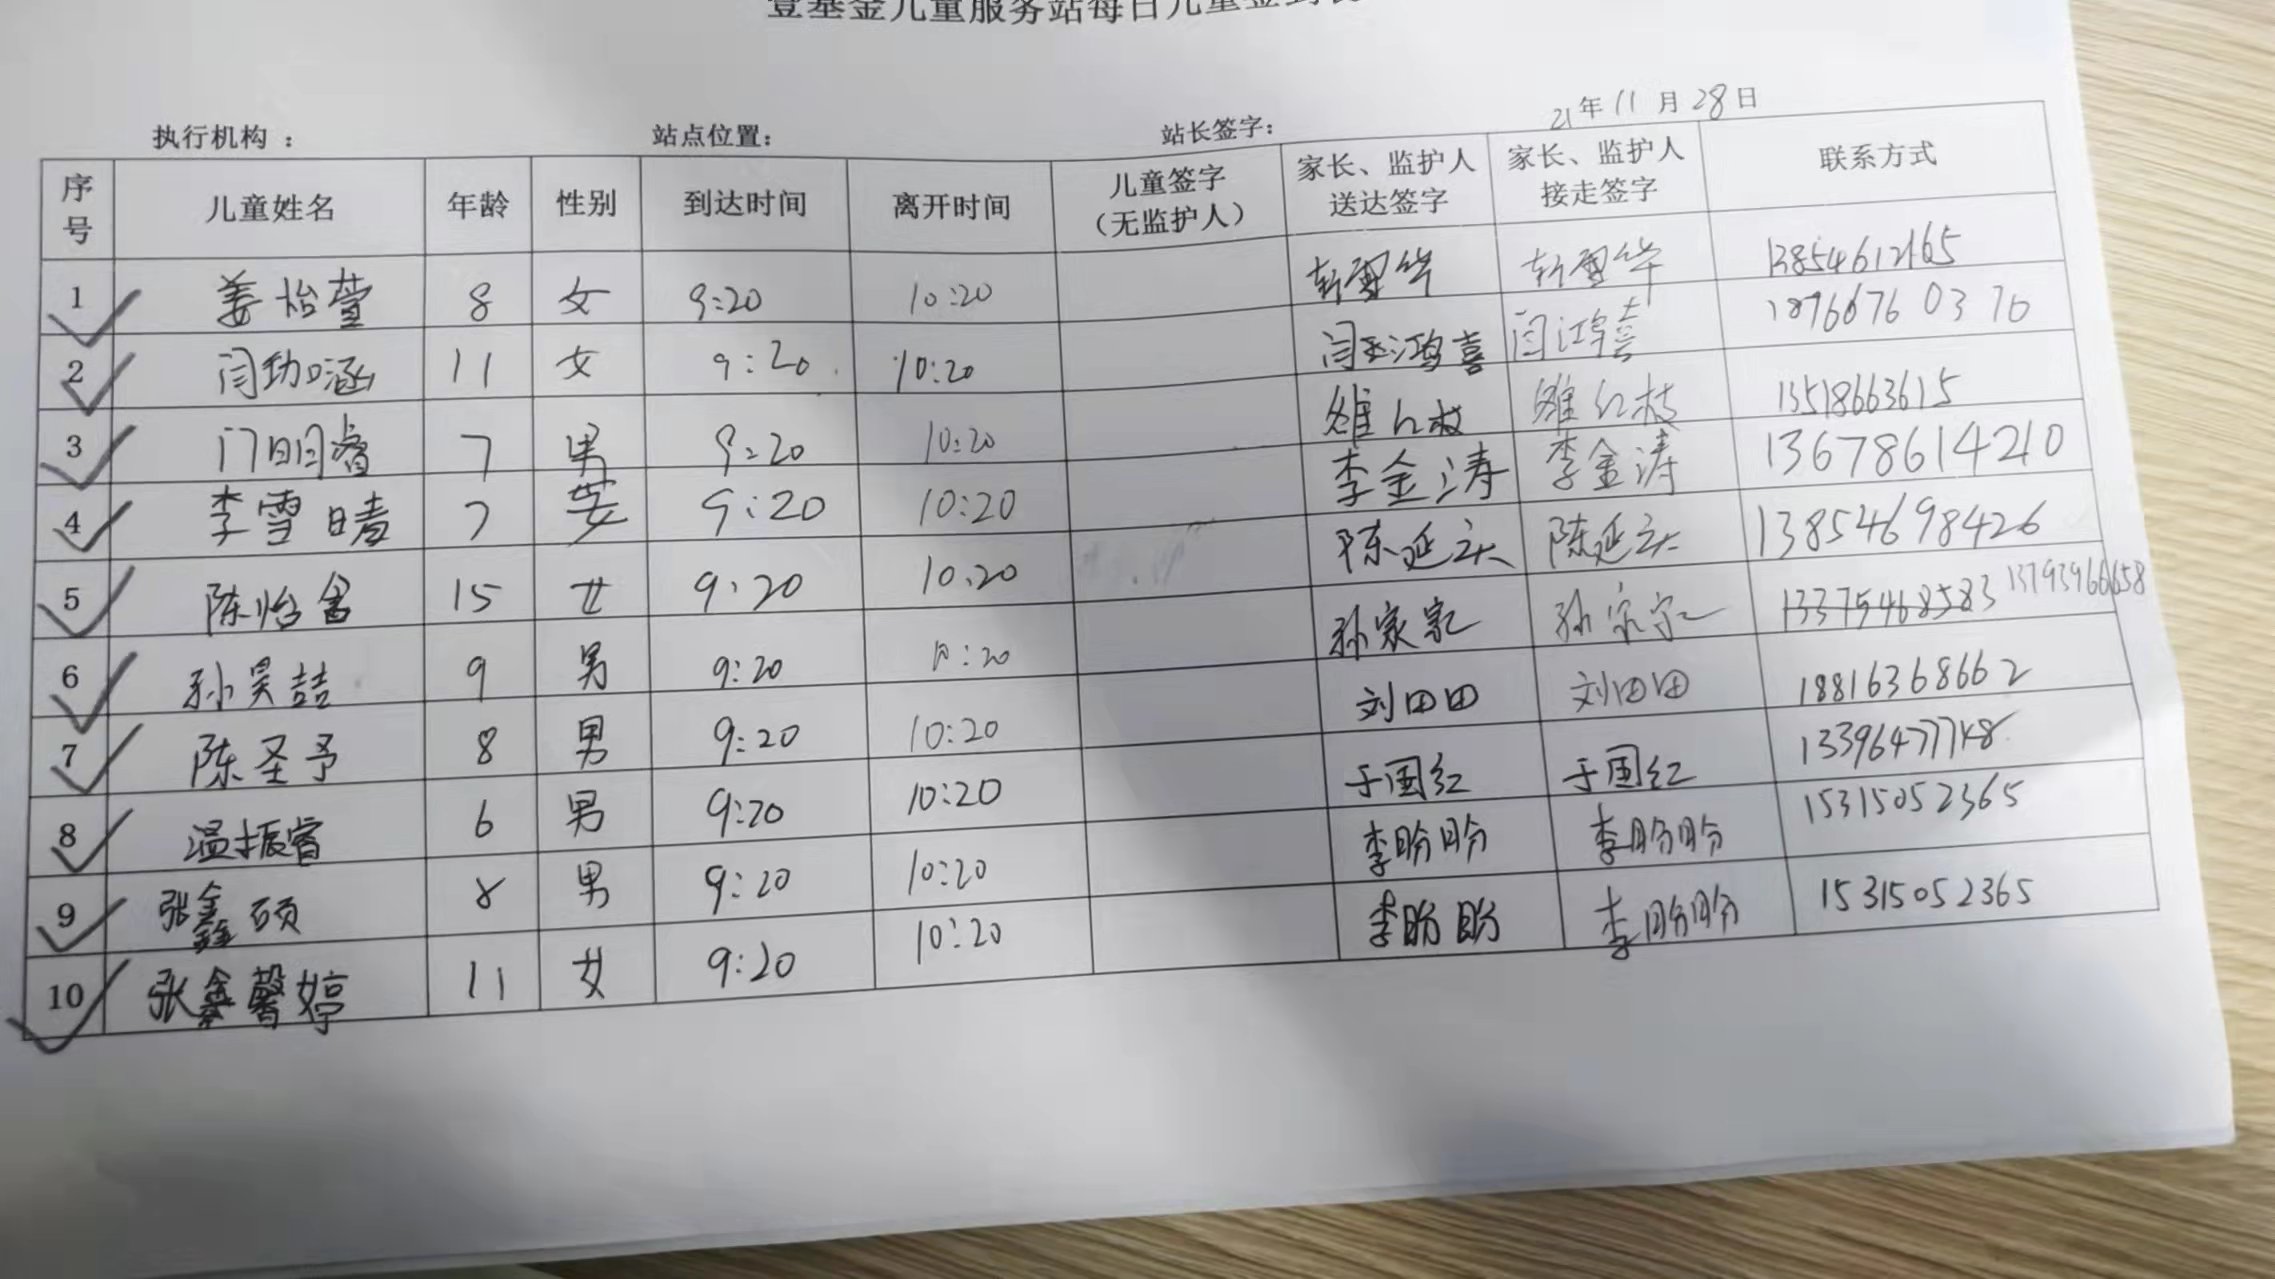 壹基金儿童服务站每日儿童签到表
21年11月28日
执行机构： 站点位置： 站长签字：
序号 儿童姓名 年龄 性别 到达时间 离开时间 儿童签字（无监护人） 家长、监护人送达签字 家长、监护人接走签字 联系方式
1 姜怡萱 8 女 9:20 10:20 13854612165
2 闫 涵 11 女 9:20 10:20 闫鸿喜 闫鸿喜 18766760376
3 7 男 9:20 10:20 雒红枝 雒红枝 13518663615
4 李雪晴 7 女 9:20 10:20 李金涛 李金涛 13678614210
5 陈怡 15 女 9:20 10:20 陈延庆 陈延庆 13854698426
6 孙昊喆 9 男 9:20 :20 孙家家 孙家家 13375468583 13793966658
7 陈圣予 8 男 9:20 10:20 刘田田 刘田田 18816368662
8 温振睿 6 男 9:20 10:20 于国红 于国红
9 张鑫硕 8 男 9:20 10:20 李盼盼 李盼盼 15315052365
10 张鑫馨婷 11 女 9:20 10:20 李盼盼 李盼盼 15315052365